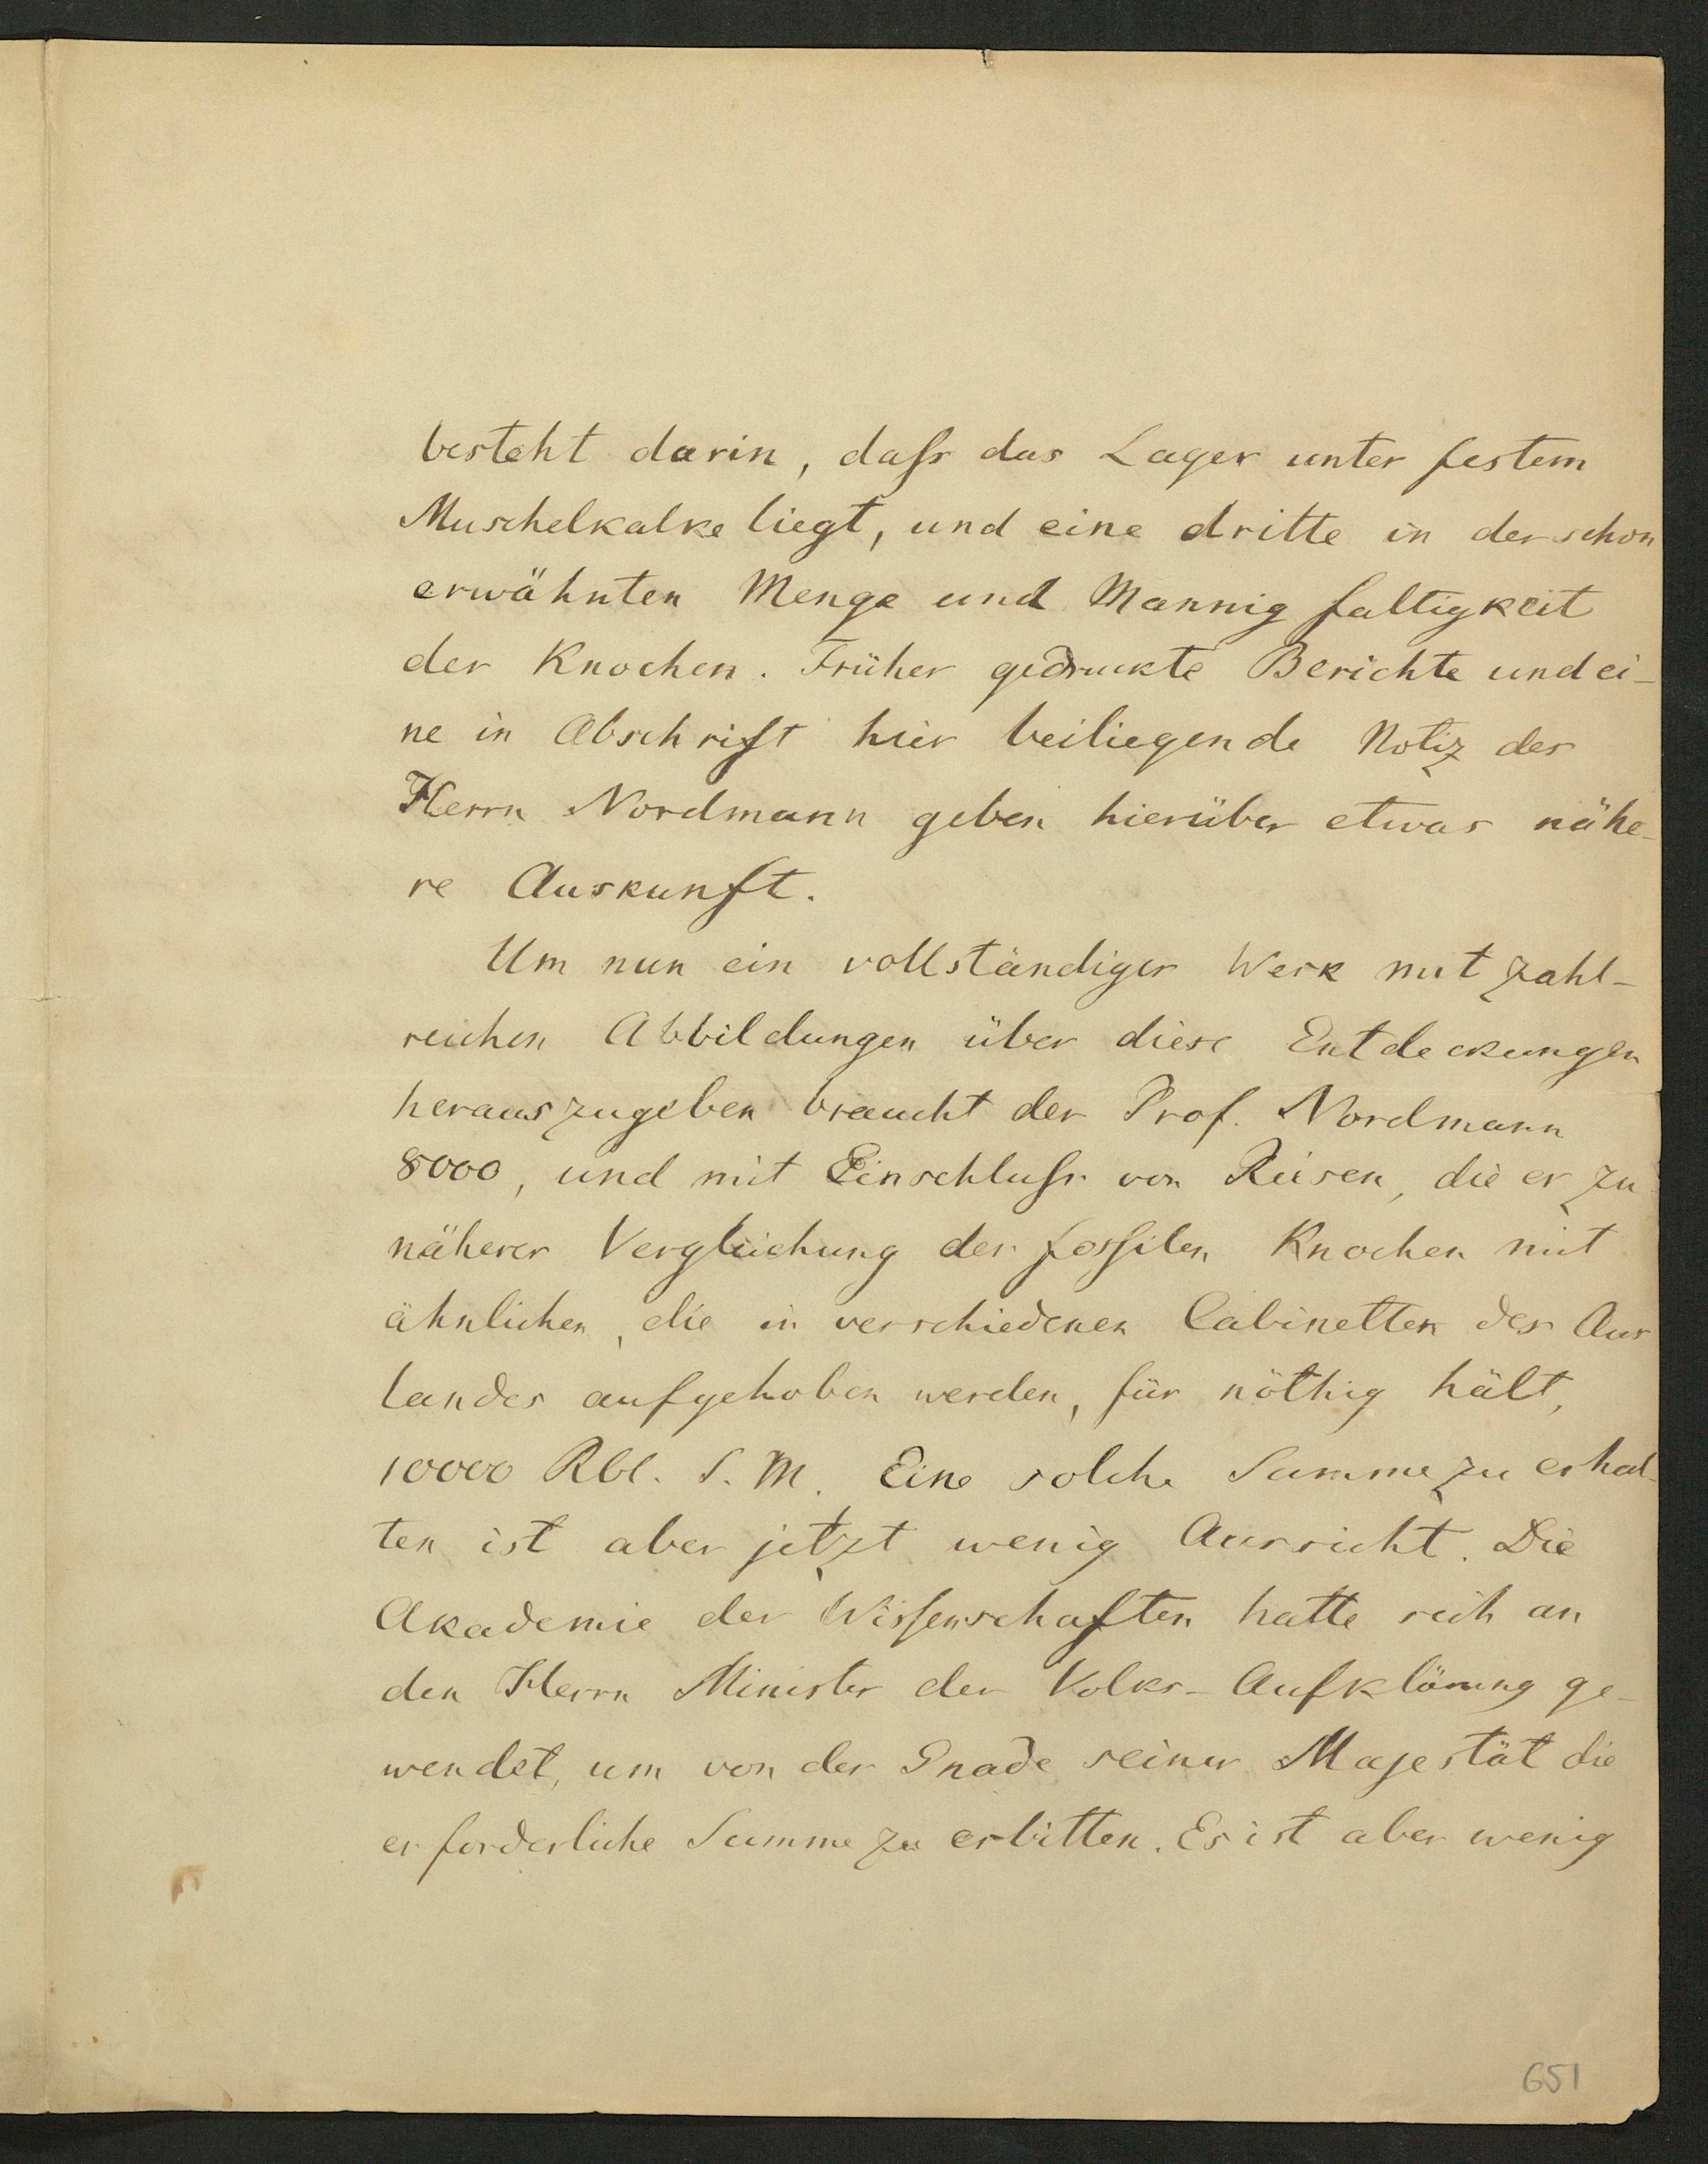 besteht darin, daſs das Lager unter festem
Muschelkalke liegt, und eine dritte in der schon
erwähnten Menge und Mannigfaltigkeit
der Knochen. Früher gedruckte Berichte und ei-
ne in Abschrift hier beiliegende Notiz des
Herrn Nordmann geben hierüber etwas nähe-
re Auskunft.
Um nun ein vollständiges Werk mit zahl-
reichen Abbildungen über diese Entdeckungen
herauszugeben braucht der Prof. Nordmann
8000, und mit Einschluſs von Reisen, die er zu
näherer Vergleichung der foſsilen Knochen mit
ähnlichen, die in verschiedenen Cabinetten des Aus
landes aufgehoben werden, für nöthig hält,
10000 Rbl. S. M. Eine solche Summe zu erhal-
ten ist aber jetzt wenig Aussicht. Die
Akademie der Wiſsenschaften hatte sich an
den Herrn Minister der Volks-Aufklärung ge-
wendet, um von der Gnade seiner Majestät die
erforderliche Summe zu erbitten. Es ist aber wenig
651